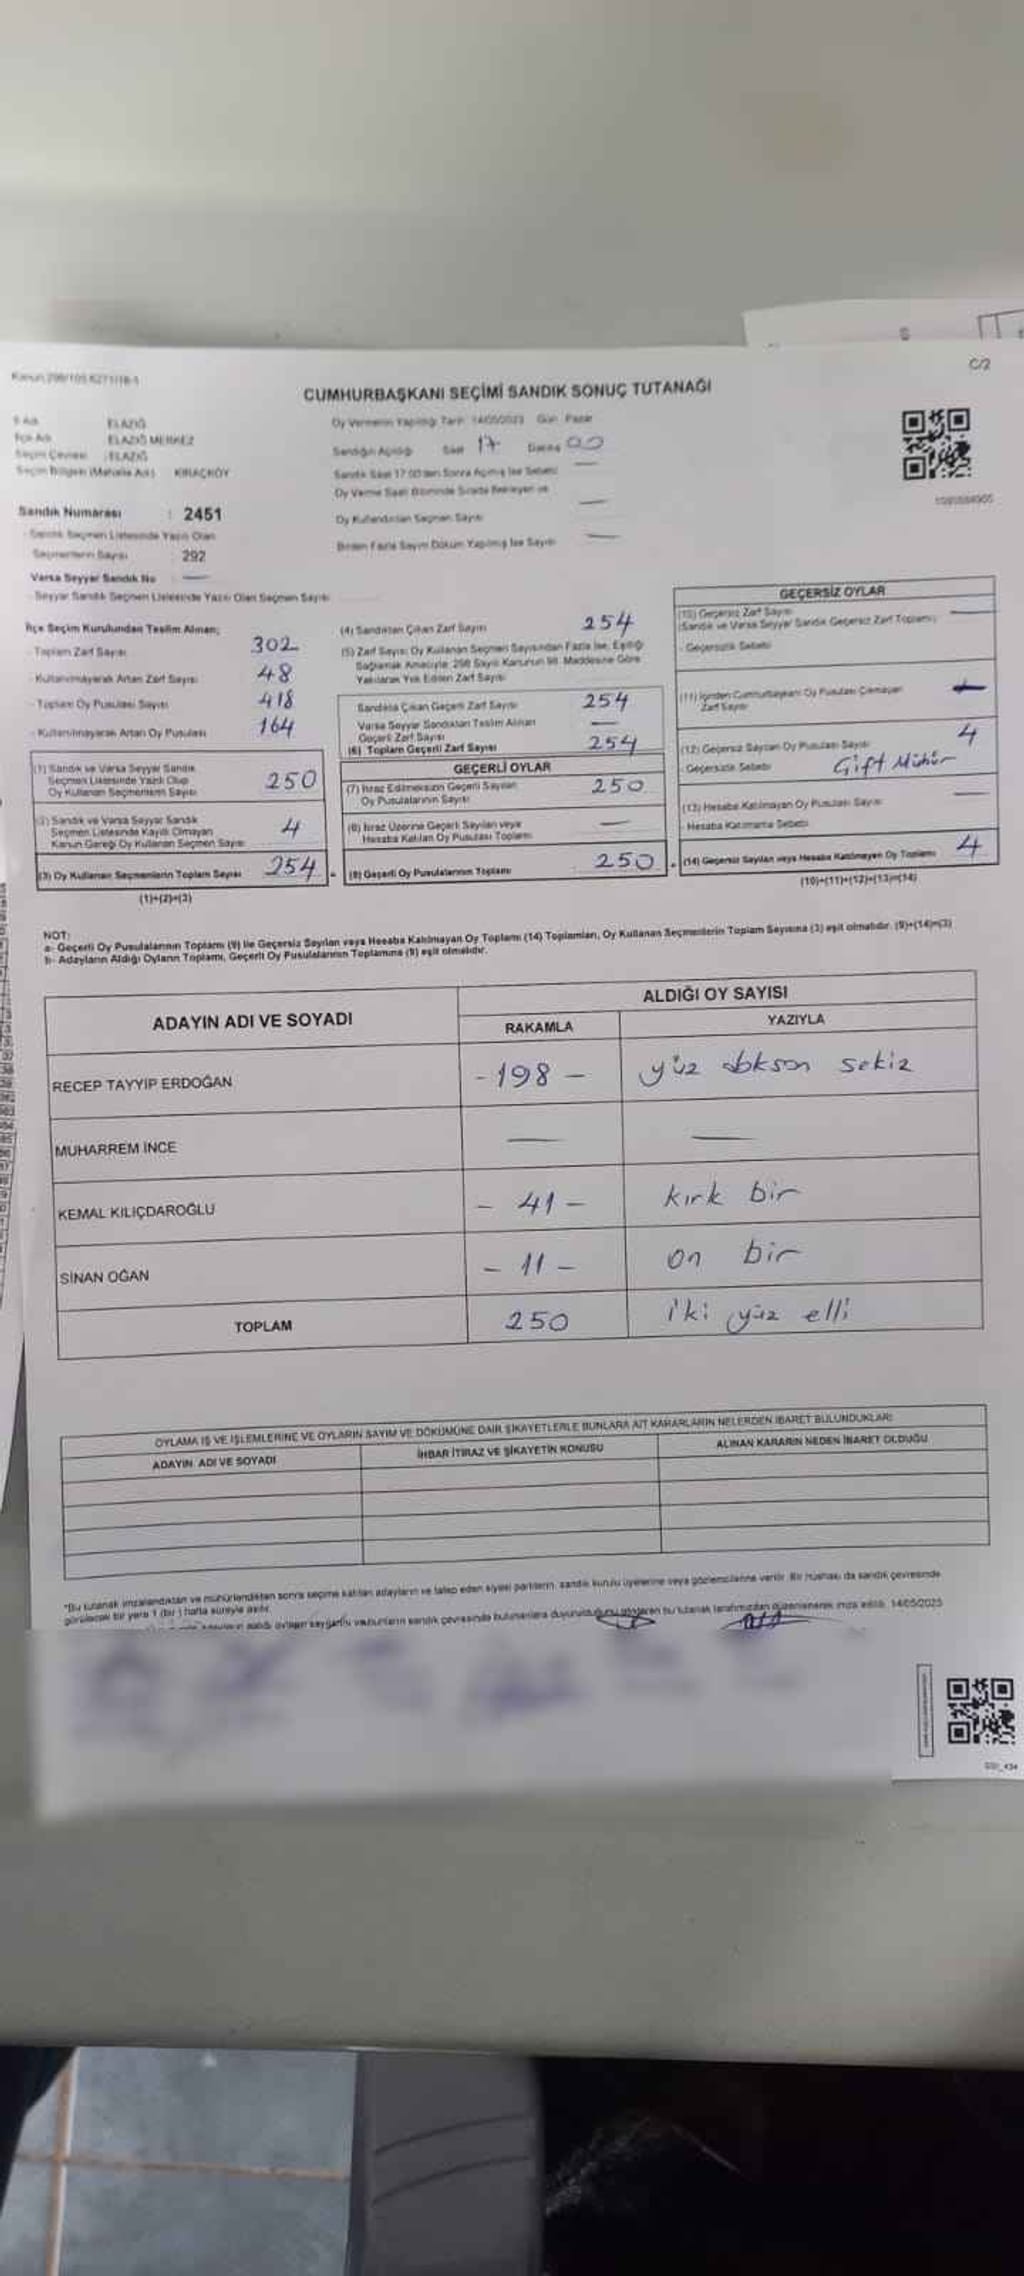 C/2
CUMHURBAŞKANI SEÇİMİ SANDIK SONUÇ TUTANAĞI
İl Adı ELAZIĞ
İlçe Adı ELAZIĞ MERKEZ
Seçim Çevresi : ELAZIĞ
Seçim Bölgesi (Mahalle Adı) KIRAÇKÖY
Sandık Numarası : 2451
Sandık Seçmen Listesinde Yazılı Olan
Seçmenlerin Sayısı : 292
Varsa Seyyar Sandık No —
- Seyyar Sandık Seçmen Listesinde Yazılı Olan Seçmen Sayısı
Oy Vermenin Yapıldığı Tarih 14/05/2023 Gün Pazar
Sandığın Açıldığı Saat 17 Dakika 00
Sandık Saat 17.00'den Sonra Açılmış İse Sebebi —
Oy Verme Saati Bitiminde Sırada Bekleyen ve
Oy Kullandırılan Seçmen Sayısı —
Birden Fazla Sayım Döküm Yapılmış İse Sayısı —
İlçe Seçim Kurulundan Teslim Alınan;
- Toplam Zarf Sayısı 302
- Kullanılmayarak Artan Zarf Sayısı 48
- Toplam Oy Pusulası Sayısı 418
- Kullanılmayarak Artan Oy Pusulası 164
(1) Sandık ve Varsa Seyyar Sandık
Seçmen Listesinde Yazılı Olup
Oy Kullanan Seçmenlerin Sayısı 250
(2) Sandık ve Varsa Seyyar Sandık
Seçmen Listesinde Kayıtlı Olmayan
Kanun Gereği Oy Kullanan Seçmen Sayısı 4
(3) Oy Kullanan Seçmenlerin Toplam Sayısı 254
(1)+(2)=(3)
(4) Sandıktan Çıkan Zarf Sayısı 254
(5) Zarf Sayısı Oy Kullanan Seçmen Sayısından Fazla İse, Eşitliği
Sağlamak Amacıyla 298 Sayılı Kanunun 98. Maddesine Göre
Yakılarak Yok Edilen Zarf Sayısı
Sandıkta Çıkan Geçerli Zarf Sayısı 254
Varsa Seyyar Sandıktan Teslim Alınan
Geçerli Zarf Sayısı —
(6) Toplam Geçerli Zarf Sayısı 254
GEÇERLİ OYLAR
(7) İtiraz Edilmeksizin Geçerli Sayılan
Oy Pusulalarının Sayısı 250
(8) İtiraz Üzerine Geçerli Sayılan veya
Hesaba Katılan Oy Pusulası Toplamı —
(9) Geçerli Oy Pusulalarının Toplamı 250
GEÇERSİZ OYLAR
(10) Geçersiz Zarf Sayısı —
(Sandık ve Varsa Seyyar Sandık Geçersiz Zarf Toplamı)
- Geçersizlik Sebebi
(11) İçinden Cumhurbaşkanı Oy Pusulası Çıkmayan
Zarf Sayısı —
(12) Geçersiz Sayılan Oy Pusulası Sayısı 4
- Geçersizlik Sebebi Çift Mühür
(13) Hesaba Katılmayan Oy Pusulası Sayısı —
- Hesaba Katılmama Sebebi
(14) Geçersiz Sayılan veya Hesaba Katılmayan Oy Toplamı 4
(10)+(11)+(12)+(13)=(14)
NOT:
a- Geçerli Oy Pusulalarının Toplamı (9) ile Geçersiz Sayılan veya Hesaba Katılmayan Oy Toplamı (14) Toplamları, Oy Kullanan Seçmenlerin Toplam Sayısına (3) eşit olmalıdır. (9)+(14)=(3)
b- Adayların Aldığı Oyların Toplamı, Geçerli Oy Pusulalarının Toplamına (9) eşit olmalıdır.
ADAYIN ADI VE SOYADI ALDIĞI OY SAYISI
RAKAMLA YAZIYLA
RECEP TAYYİP ERDOĞAN - 198 - yüz doksan sekiz
MUHARREM İNCE — —
KEMAL KILIÇDAROĞLU - 41 - kırk bir
SİNAN OĞAN - 11 - on bir
TOPLAM 250 iki yüz elli
OYLAMA İŞ VE İŞLEMLERİNE VE OYLARIN SAYIM VE DÖKÜMÜNE DAİR ŞİKAYETLERLE BUNLARA AİT KARARLARIN NELERDEN İBARET BULUNDUKLARI
ADAYIN ADI VE SOYADI İHBAR İTİRAZ VE ŞİKAYETİN KONUSU ALINAN KARARIN NEDEN İBARET OLDUĞU
*Bu tutanak imzalandıktan ve mühürlendikten sonra seçime katılan adayların ve talep eden siyasi partilerin, sandık kurulu üyelerine veya gözlemcilerine verilir. Bir nüshası da sandık çevresinde
görülecek bir yere 1 (bir) hafta süreyle asılır.
bu tutanak tarafımızdan düzenlenerek imza edildi. 14/05/2023